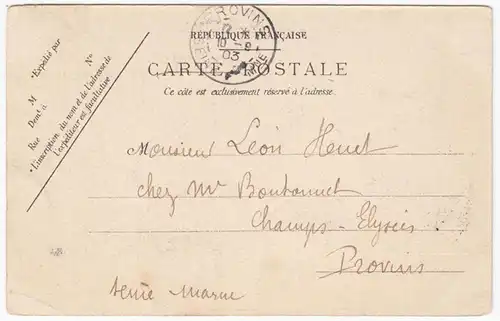 PROVINS
10 - 9
03
RÉPUBLIQUE FRANÇAISE
CARTE POSTALE
Ce côté est exclusivement réservé à l'adresse.
• Expédié par
M
N°
Demt à
Rue
• L'inscription du nom et de l'adresse de
l'expéditeur est facultative
Monsieur Léon
chez Mr Boutonnet
Champs-Elysées
Provins
Seine Marne